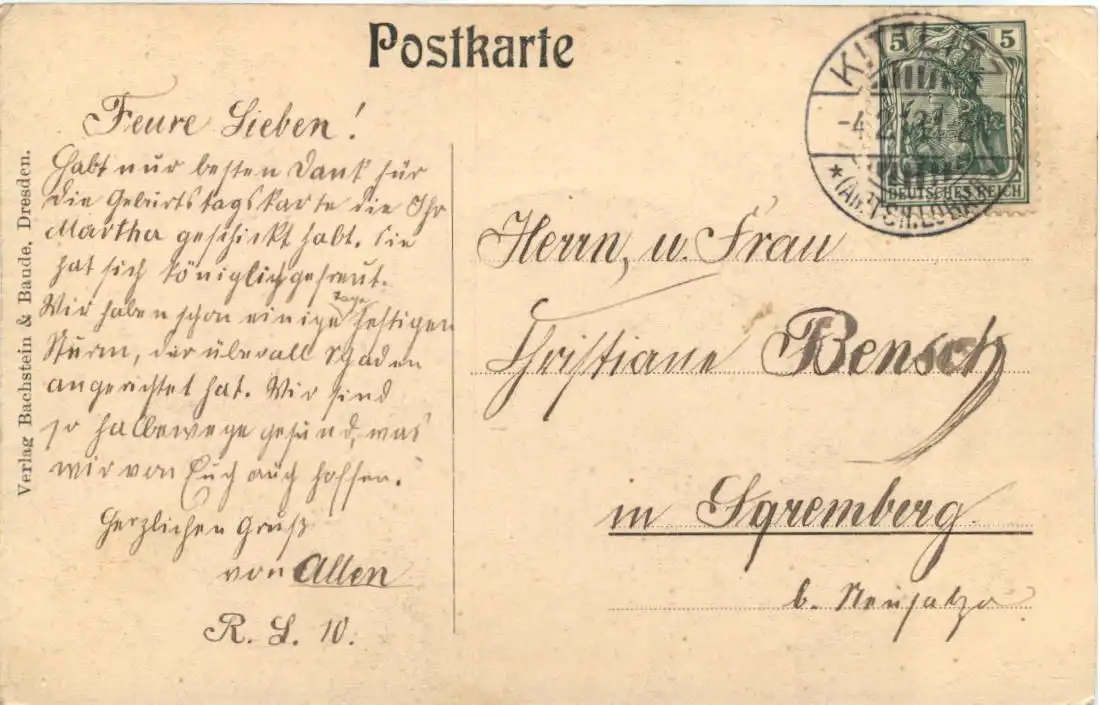 Postkarte
KITTLITZ
-4.2.12
* (AMTSH. LÖBAU)
5 5
DEUTSCHES REICH
Teure Lieben!
Habt nur besten Dank für
die Geburtstagskarte die Ihr
Martha geschickt habt. Sie
hat sich königlich gefreut.
Wir haben schon einige Tage heftigen
Sturm, der überall Schaden
angerichtet hat. Wir sind
so halbewege gesund, was
wir von Euch auch hoffen.
Herzlichen Gruß
von Allen
R. L. 10.
Herrn, u. Frau
Christiane Bensch
in Spremberg
b. Neusalza
Verlag Bachstein & Baude, Dresden.